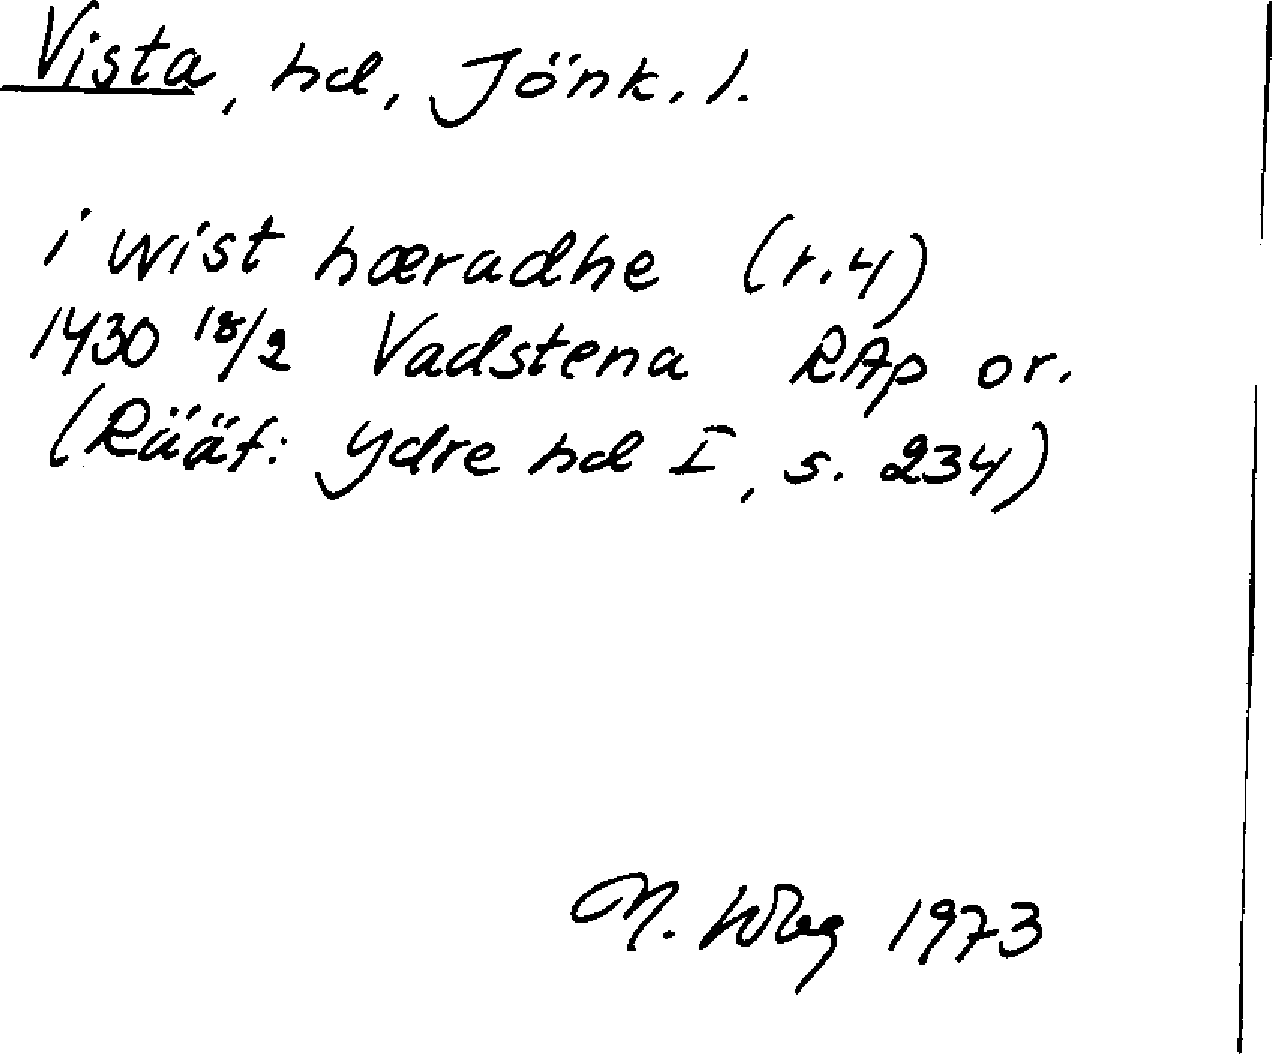 Vista, hd, Jönk. l.
i wist hæradhe (r. 4)
1430 18/2 Vadstena RAp or.
(Rääf: Ydre hd I, s. 234)
M. 1973